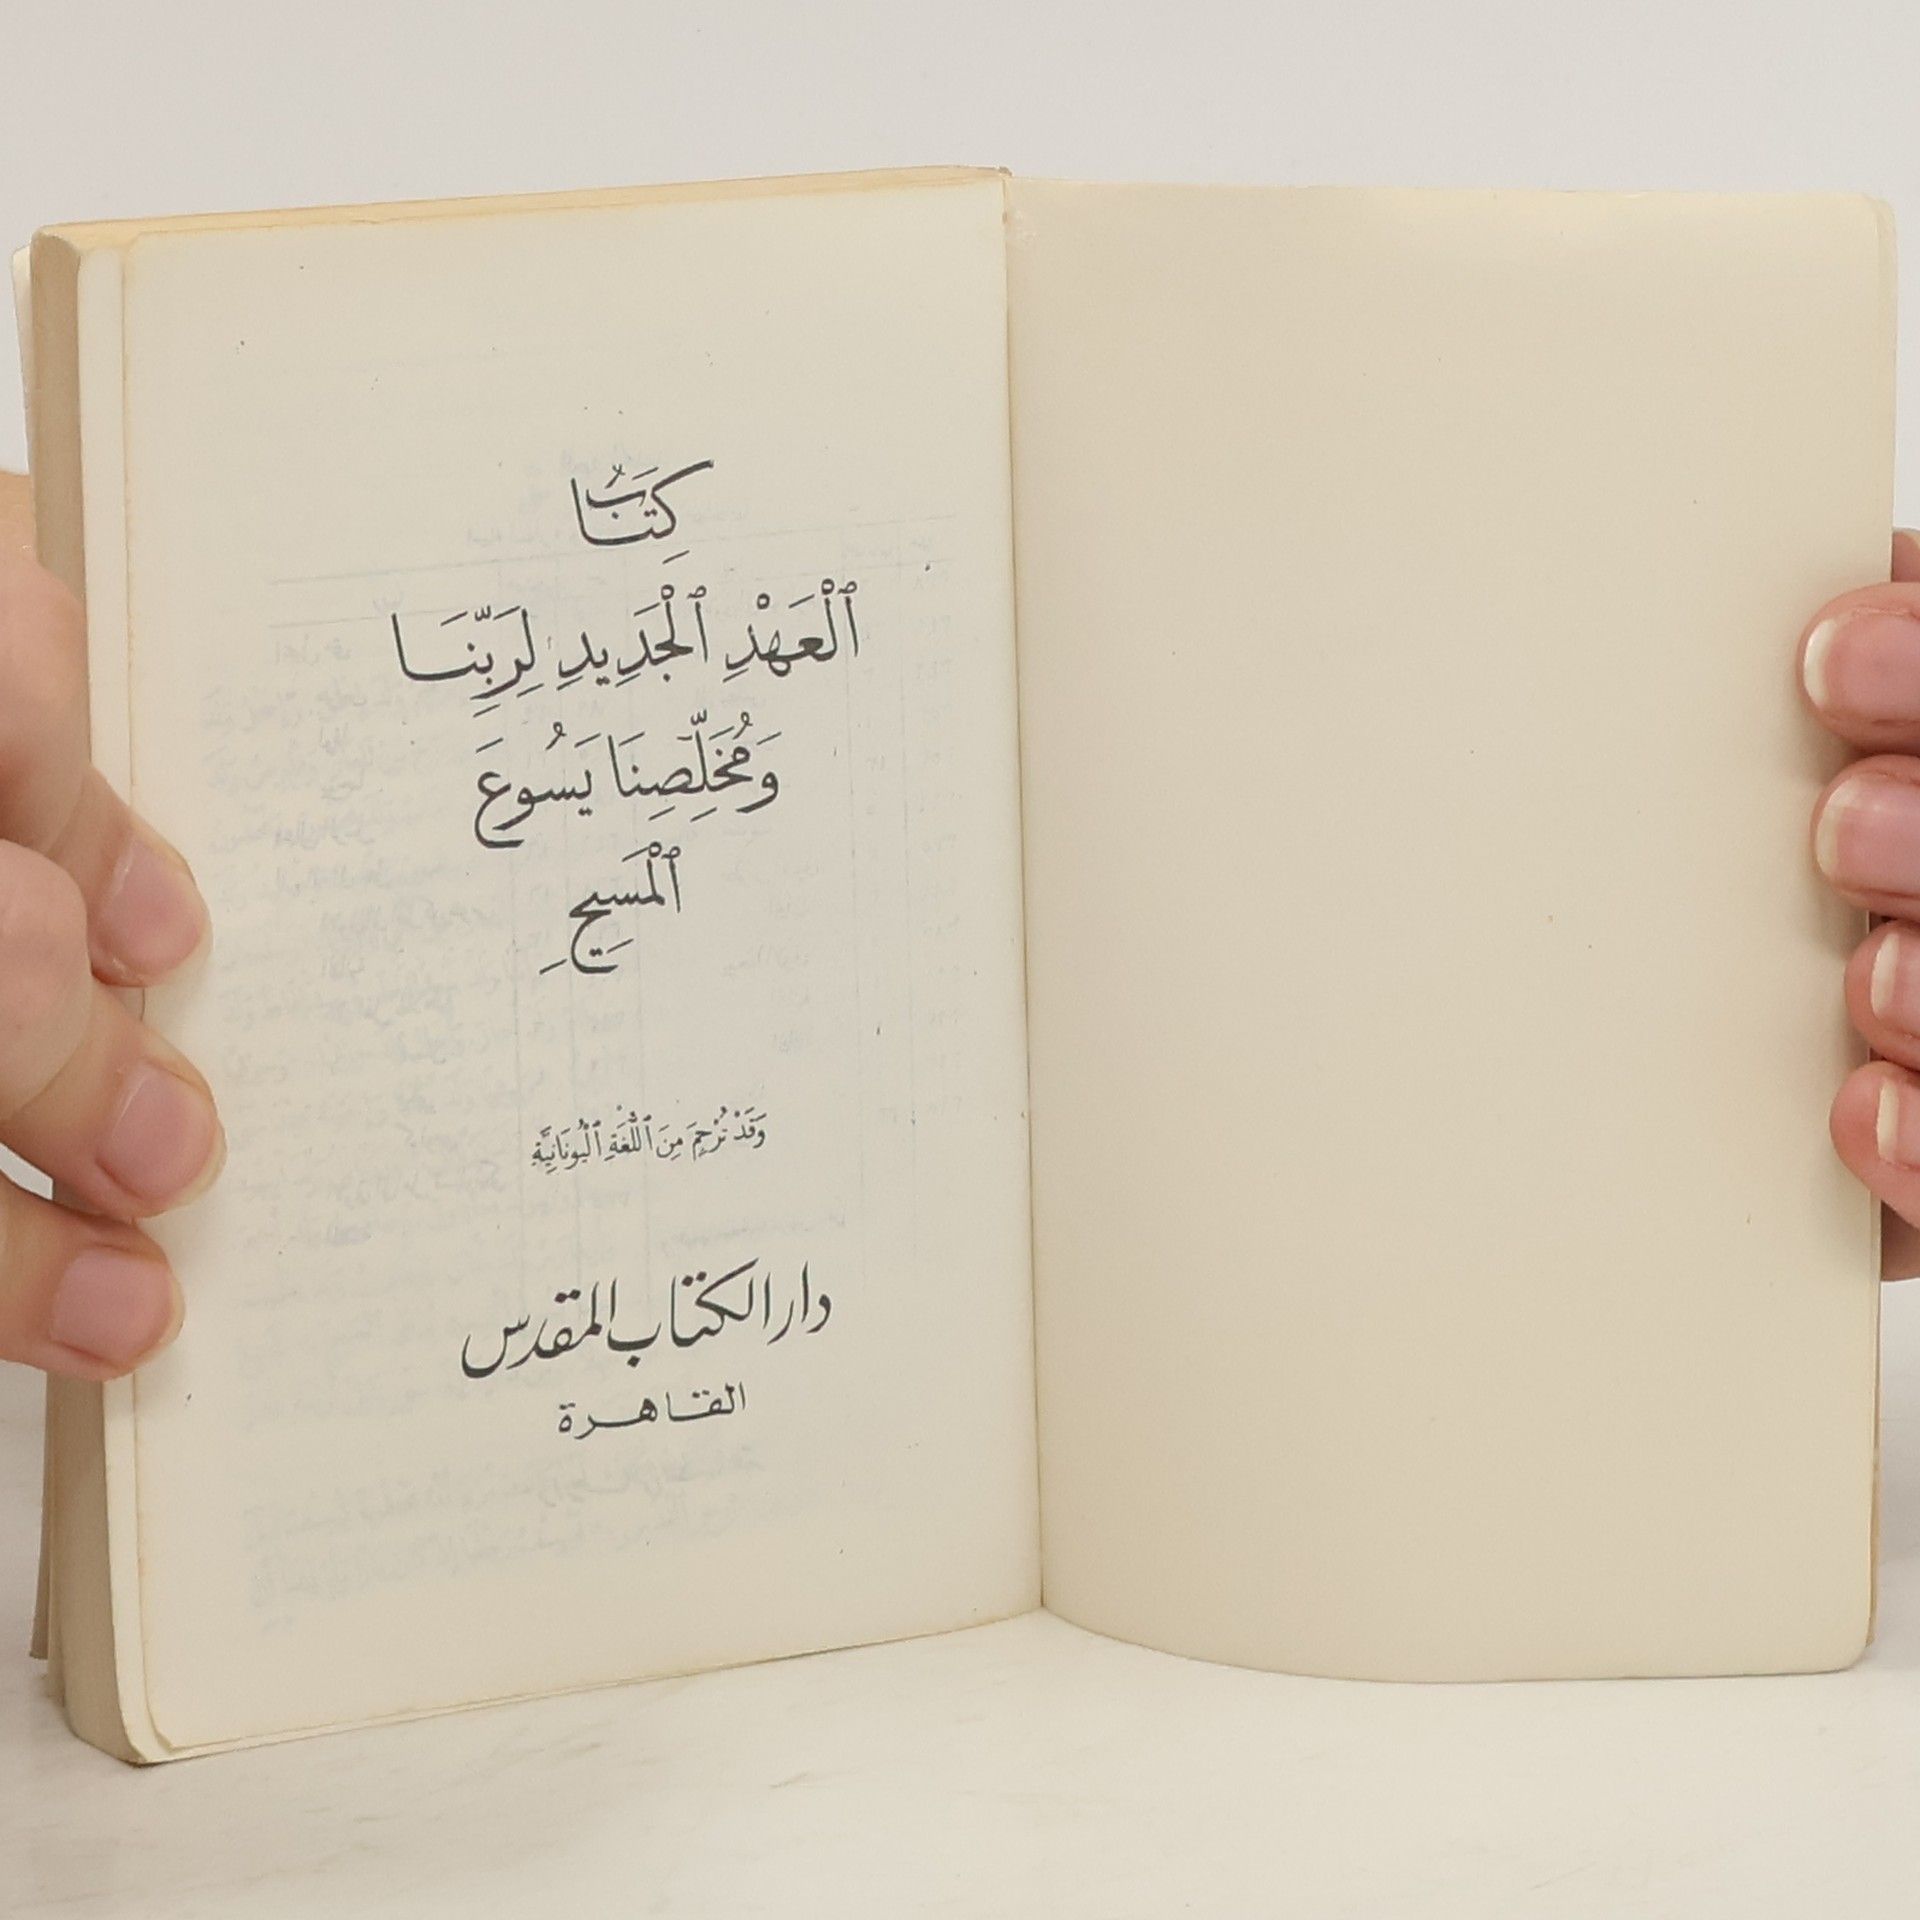 كِتَابُ
ٱلْعَهْدِ ٱلْجَدِيدِ لِرَبِّنَا
وَمُخَلِّصِنَا يَسُوعَ
ٱلْمَسِيحِ
وَقَدْ تُرْجِمَ مِنَ ٱللُّغَةِ ٱلْيُونَانِيَّةِ
دار الكتاب المقدس
القاهرة